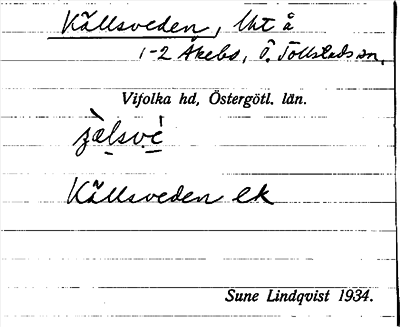 Källsveden, lht å
1-2 Åkebo, Ö. Tollstads sn.
Vifolka hd, Östergötl. län.
Källsveden ek
Sune Lindqvist 1934.